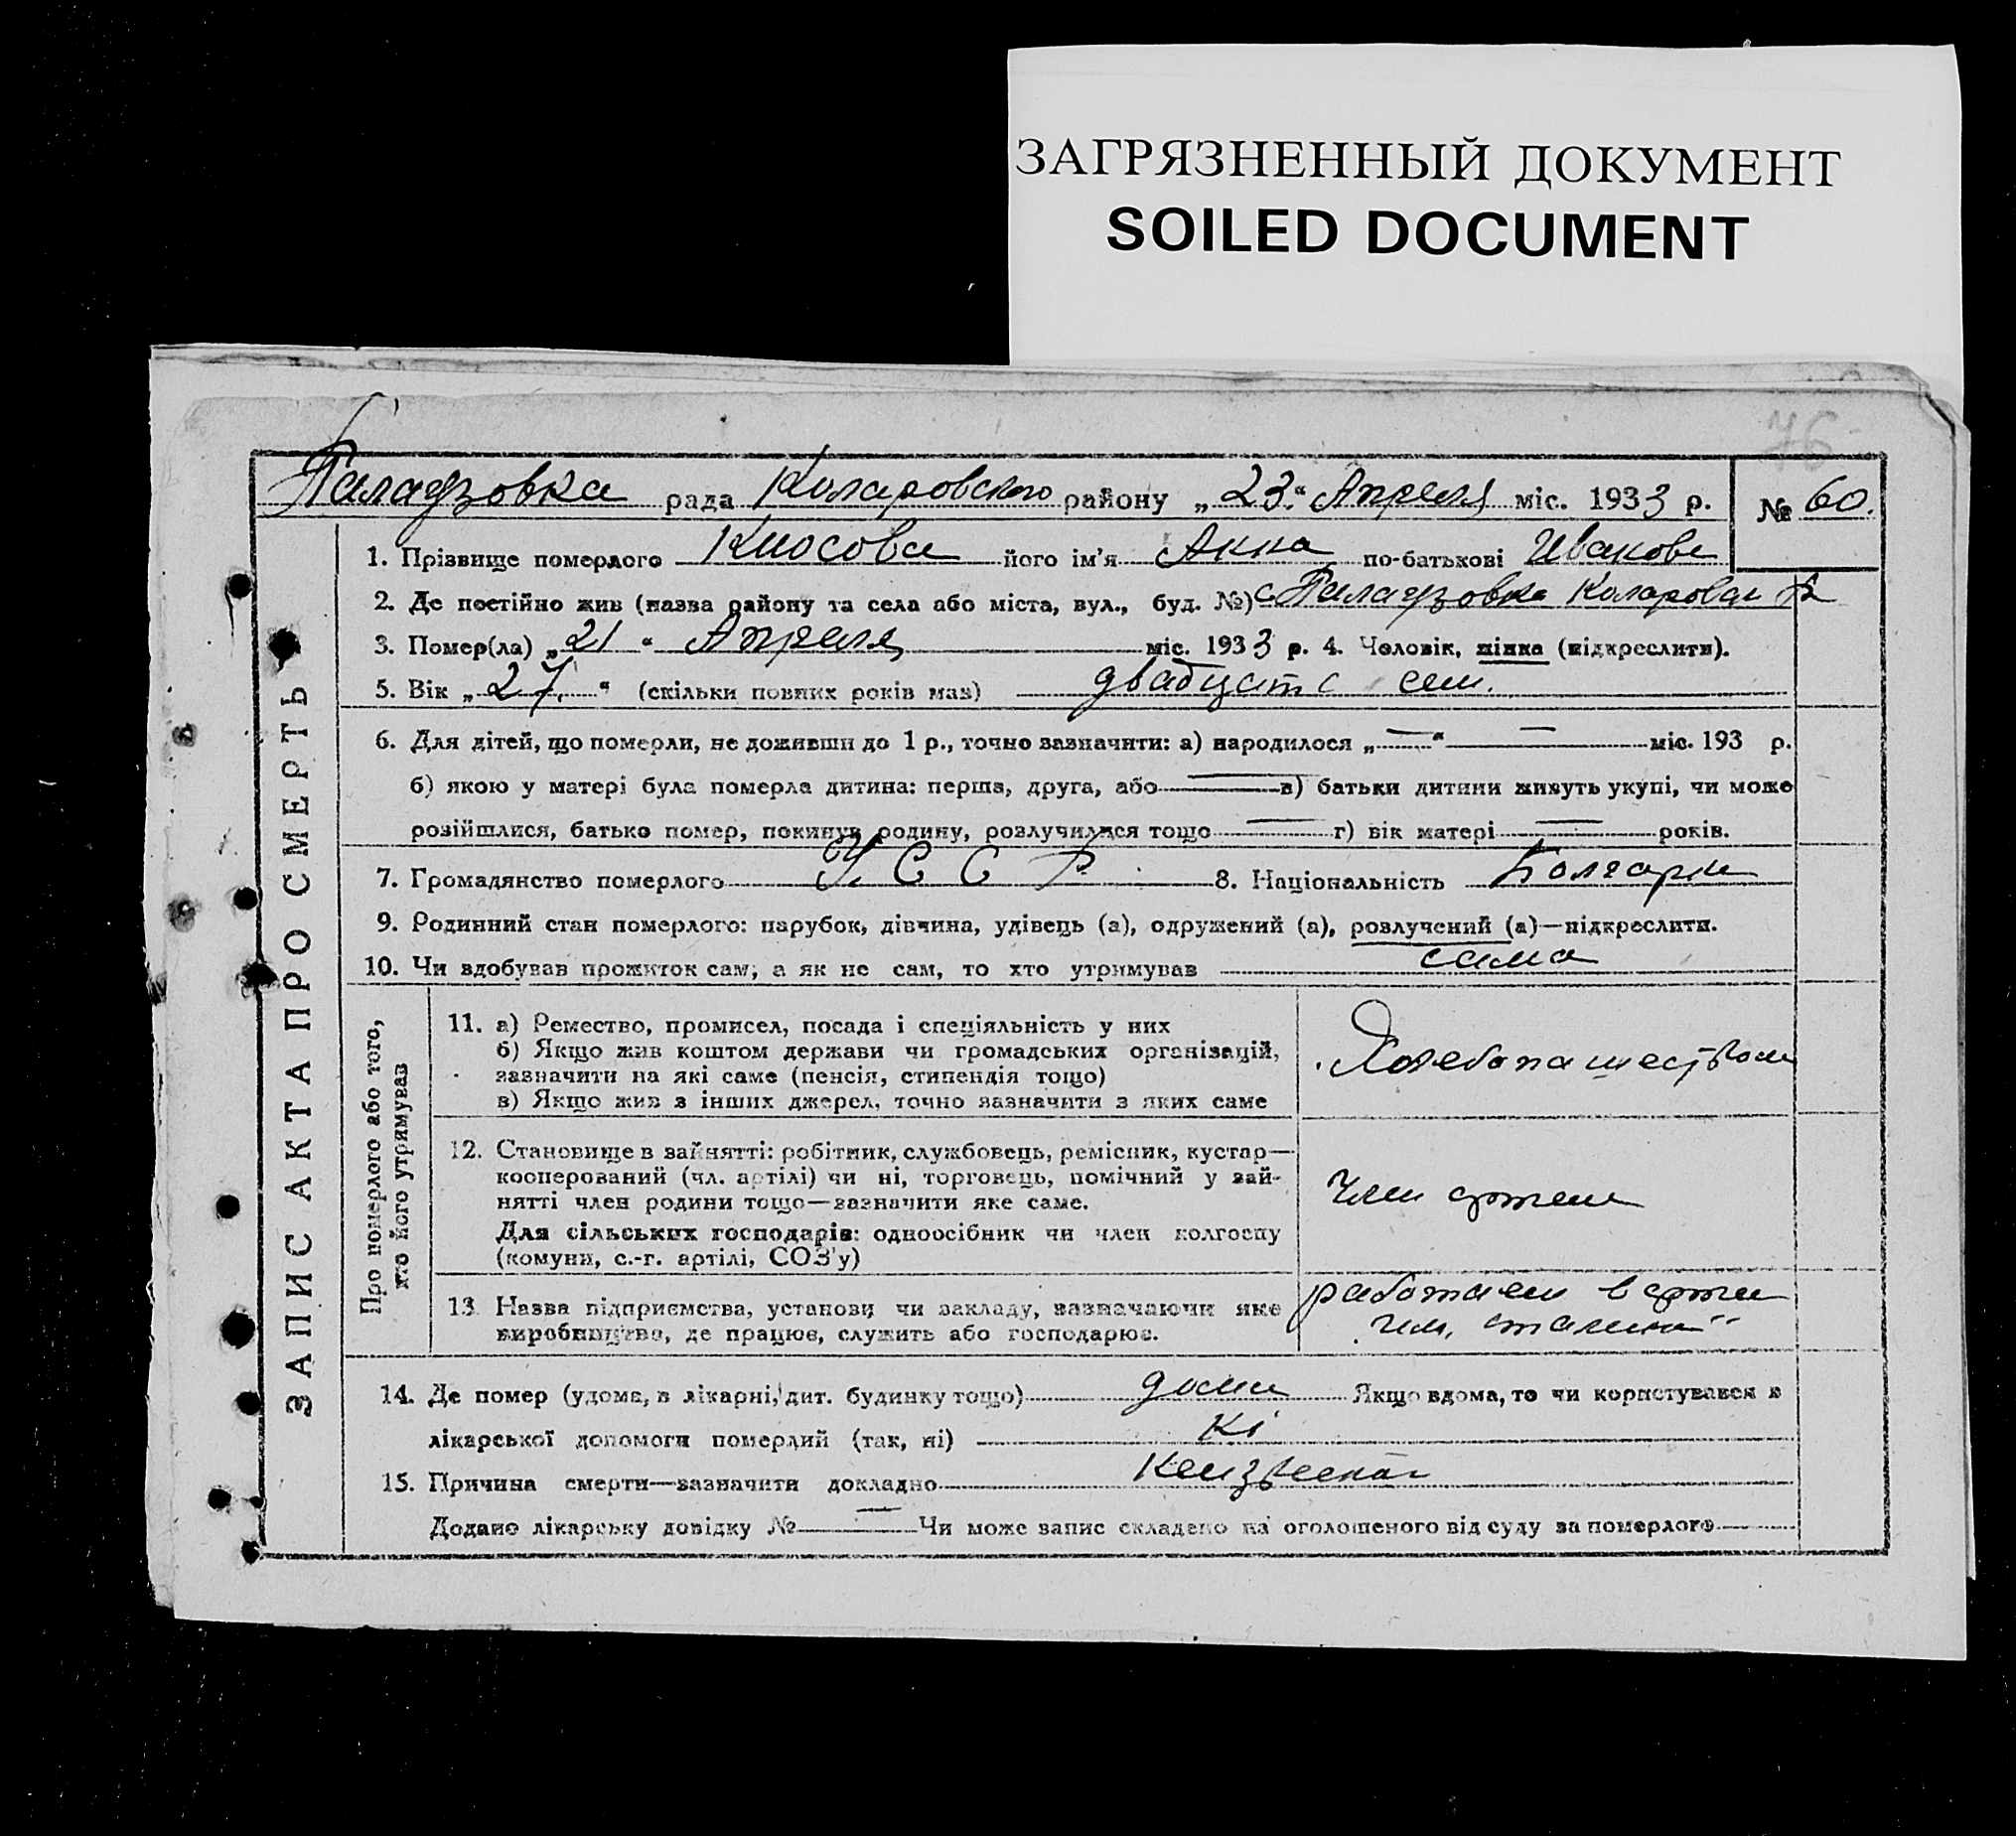 ЗАГРЯЗНЕННЫЙ ДОКУМЕНТ
SOILED DOCUMENT
76
Паладзовка рада Коларовского району „23“ Апреля міс. 1933 р. № 60.
ЗАПИС АКТА ПРО СМЕРТЬ
1. Прізвище померлого Кюсова його ім'я Анна по-батькові Иванове
2. Де постійно жив (назва району та села або міста, вул., буд. №) с Паладзовка Коларовск р
3. Помер(ла) „21“ Апреля міс. 1933 р. 4. Чоловік, жінка (підкреслити).
5. Вік „27.“ (скільки повних років мав) двадцать сем.
6. Для дітей, що померли, не доживши до 1 р., точно зазначити: а) народилося „—“ — міс. 193 р.
б) якою у матері була померла дитина: перша, друга, або — в) батьки дитини живуть укупі, чи може
розійшлися, батько помер, покинув родину, розлучилися тощо — г) вік матері — років.
7. Громадянство померлого У. С С Р. 8. Національність Болгарка
9. Родинний стан померлого: парубок, дівчина, удівець (а), одружений (а), розлучений (а)—підкреслити.
10. Чи здобував прожиток сам, а як не сам, то хто утримував сама
Про померлого або того,
хто його утримував
11. а) Ремество, промисел, посада і спеціяльність у них
б) Якщо жив коштом держави чи громадських організацій,
зазначити на які саме (пенсія, стипендія тощо)
в) Якщо жив з інших джерел, точно зазначити з яких саме
Хлебопашеством
12. Становище в зайнятті: робітник, службовець, ремісник, кустар—
кооперований (чл. артілі) чи ні, торговець, помічний у зай-
нятті член родини тощо—зазначити яке саме.
Для сільських господарів: одноосібник чи член колгоспу
(комуни, с.-г. артілі, СОЗ'у)
Член артели
13 Назва підприємства, установи чи закладу, зазначаючи яке
виробництво, де працює, служить або господарює.
работает в артел
им, сталина“
14. Де помер (удома, в лікарні, дит. будинку тощо) дома Якщо вдома, то чи користувався з
лікарської допомоги померлий (так, ні) Ні
15. Причина смерти—зазначити докладно Неизвесная
Додано лікарську довідку № — Чи може запис складено на оголошеного від суду за померлого